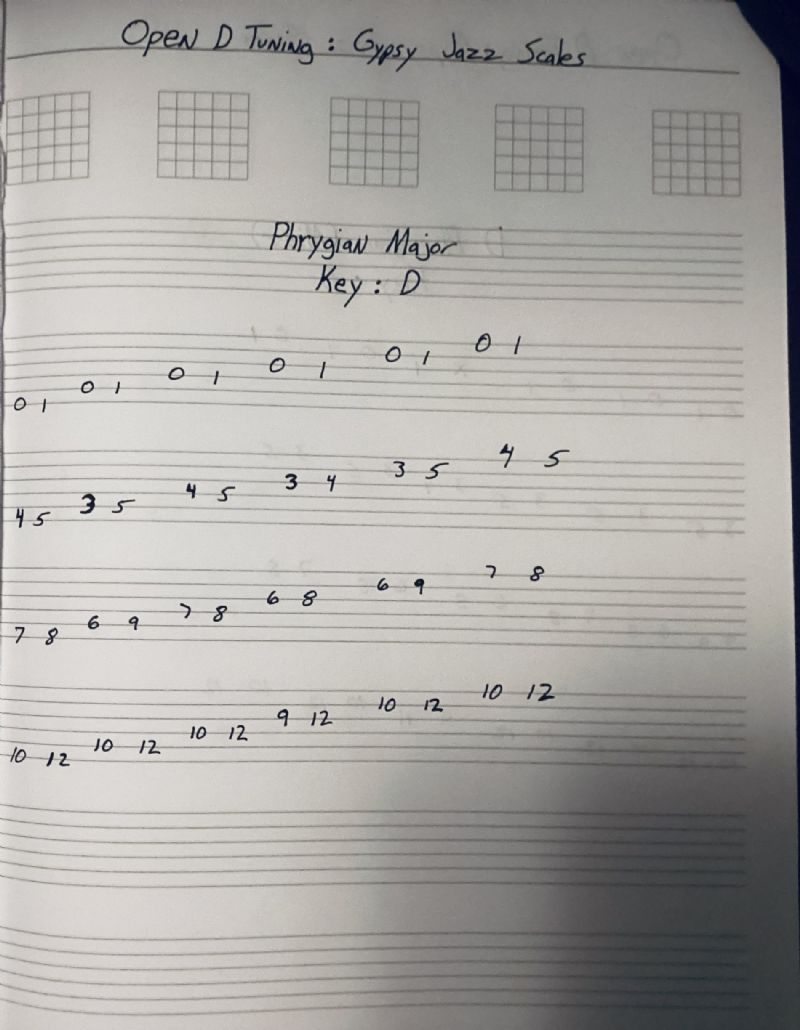 Open D Tuning: Gypsy Jazz Scales
Phrygian Major
Key: D
0 1 0 1 0 1 0 1 0 1 0 1
4 5 3 5 4 5 3 4 3 5 4 5
7 8 6 9 7 8 6 8 6 9 7 8
10 12 10 12 10 12 9 12 10 12 10 12